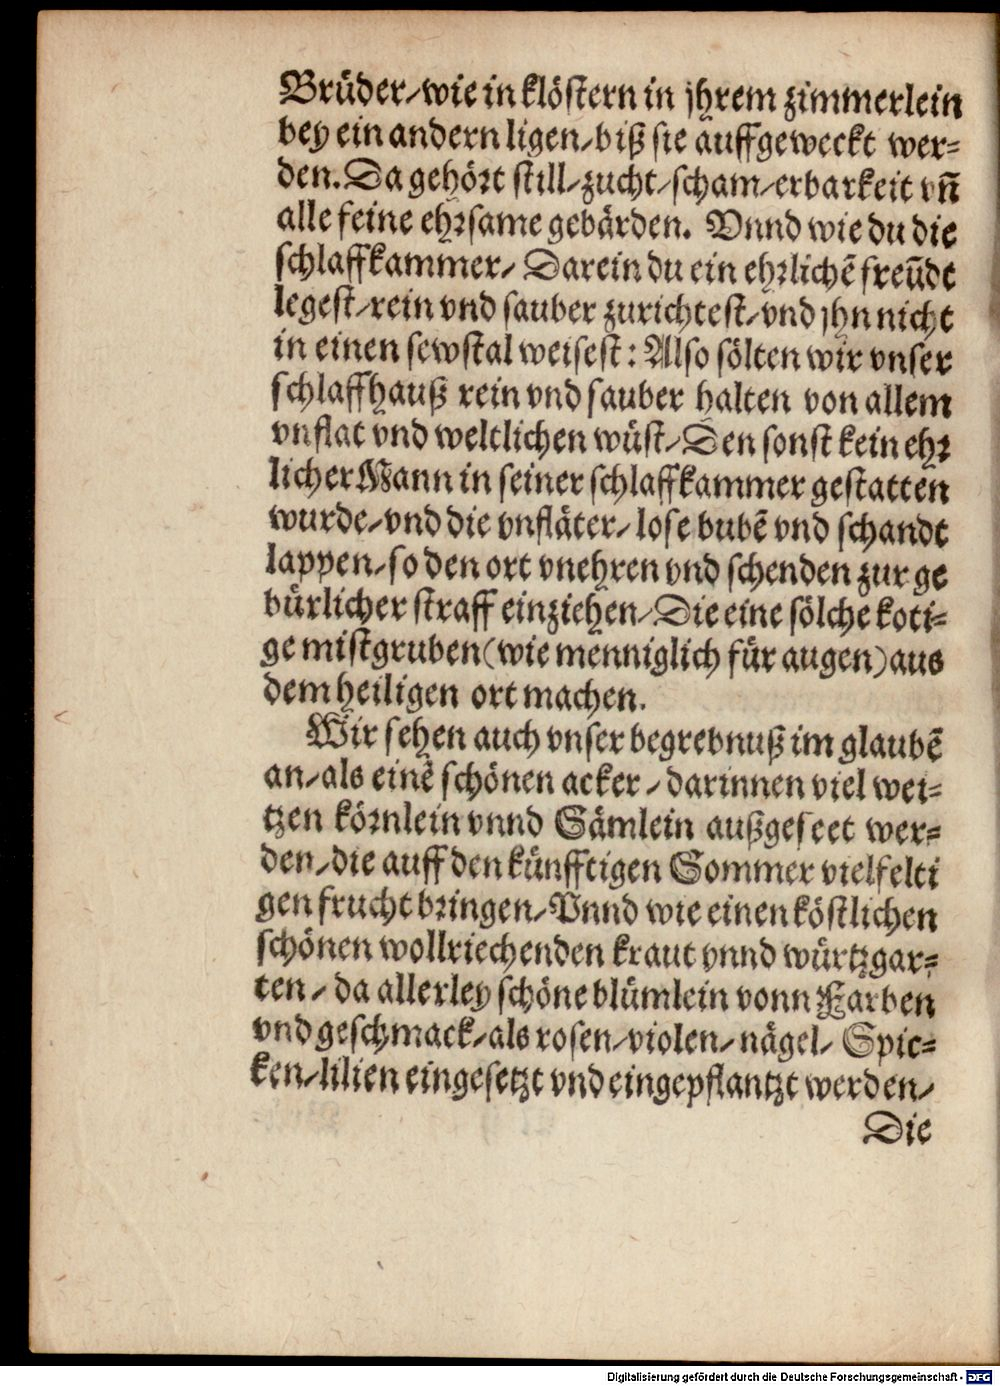 Brüder/wie in klöstern in jhrem zimmerlein
bey ein andern ligen/biß sie auffgeweckt wer⸗
den. Da gehört still/zucht/scham/erbarkeit vñ
alle feine ehrsame gebärden. Vnnd wie du die
schlaffkammer/ Darein du ein ehrlichẽ freũdt
legest/rein vnd sauber zurichtest/vnd jhn nicht
in einen sewstal weisest: Also sölten wir vnser
schlaffhauß rein vnd sauber halten von allem
vnflat vnd weltlichen wüst/Den sonst kein ehr
licher Mann in seiner schlaffkammer gestatten
wurde/vnd die vnfläter/ lose bubẽ vnd schandt
lappen/so den ort vnehren vnd schenden zur ge
bürlicher straff einziehen/Die eine sölche koti⸗
ge mistgruben(wie menniglich für augen)aus
dem heiligen ort machen.
Wir sehen auch vnser begrebnuß im glaubẽ
an/als einẽ schönen acker/darinnen viel wei⸗
tzen körnlein vnnd Sämlein außgeseet wer⸗
den/die auff den künfftigen Sommer vielfelti
gen frucht bringen/Vnnd wie einen köstlichen
schönen wollriechenden kraut vnnd würtzgar⸗
ten/ da allerley schöne blümlein vonn Farben
vnd geschmack/als rosen/violen/ nägel/ Spic⸗
ken/lilien eingesetzt vnd eingepflantzt werden/
Die
Digitalisierung gefördert durch die Deutsche Forschungsgemeinschaft - DFG